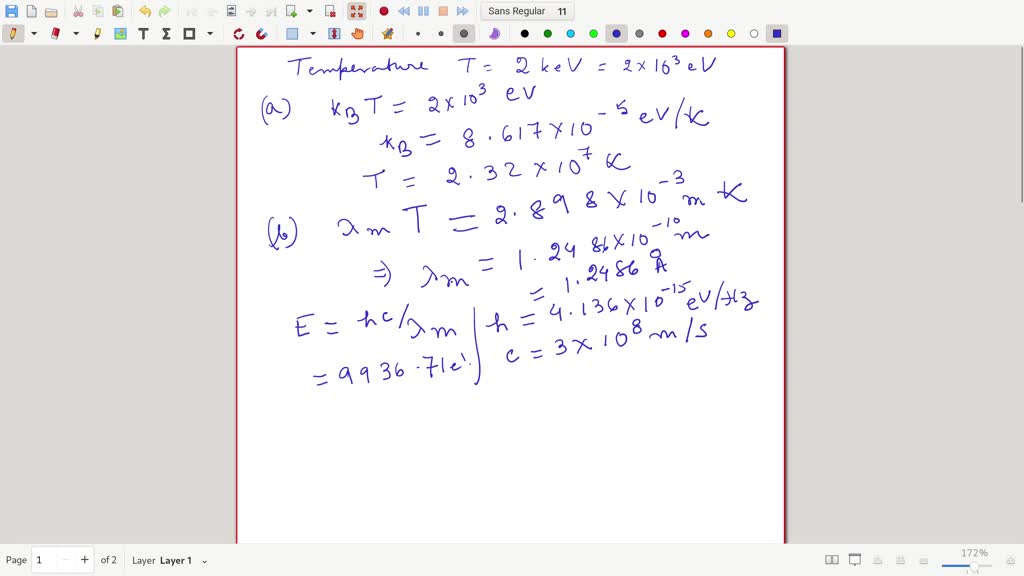 Sans Regular 11
Temperature T = 2 keV = 2×10³ eV
(a) k_B T = 2×10³ eV
k_B = 8.617×10⁻⁵ eV/K
T = 2.32×10⁷ K
(b) λ_m T = 2.898×10⁻³ m K
⇒ λ_m = 1.2486×10⁻¹⁰ m
= 1.2486 Å
E = hc/λ_m h = 4.136×10⁻¹⁵ eV/Hz
= 9936.71 e c = 3×10⁸ m/s
Page 1 of 2 Layer Layer 1 172%